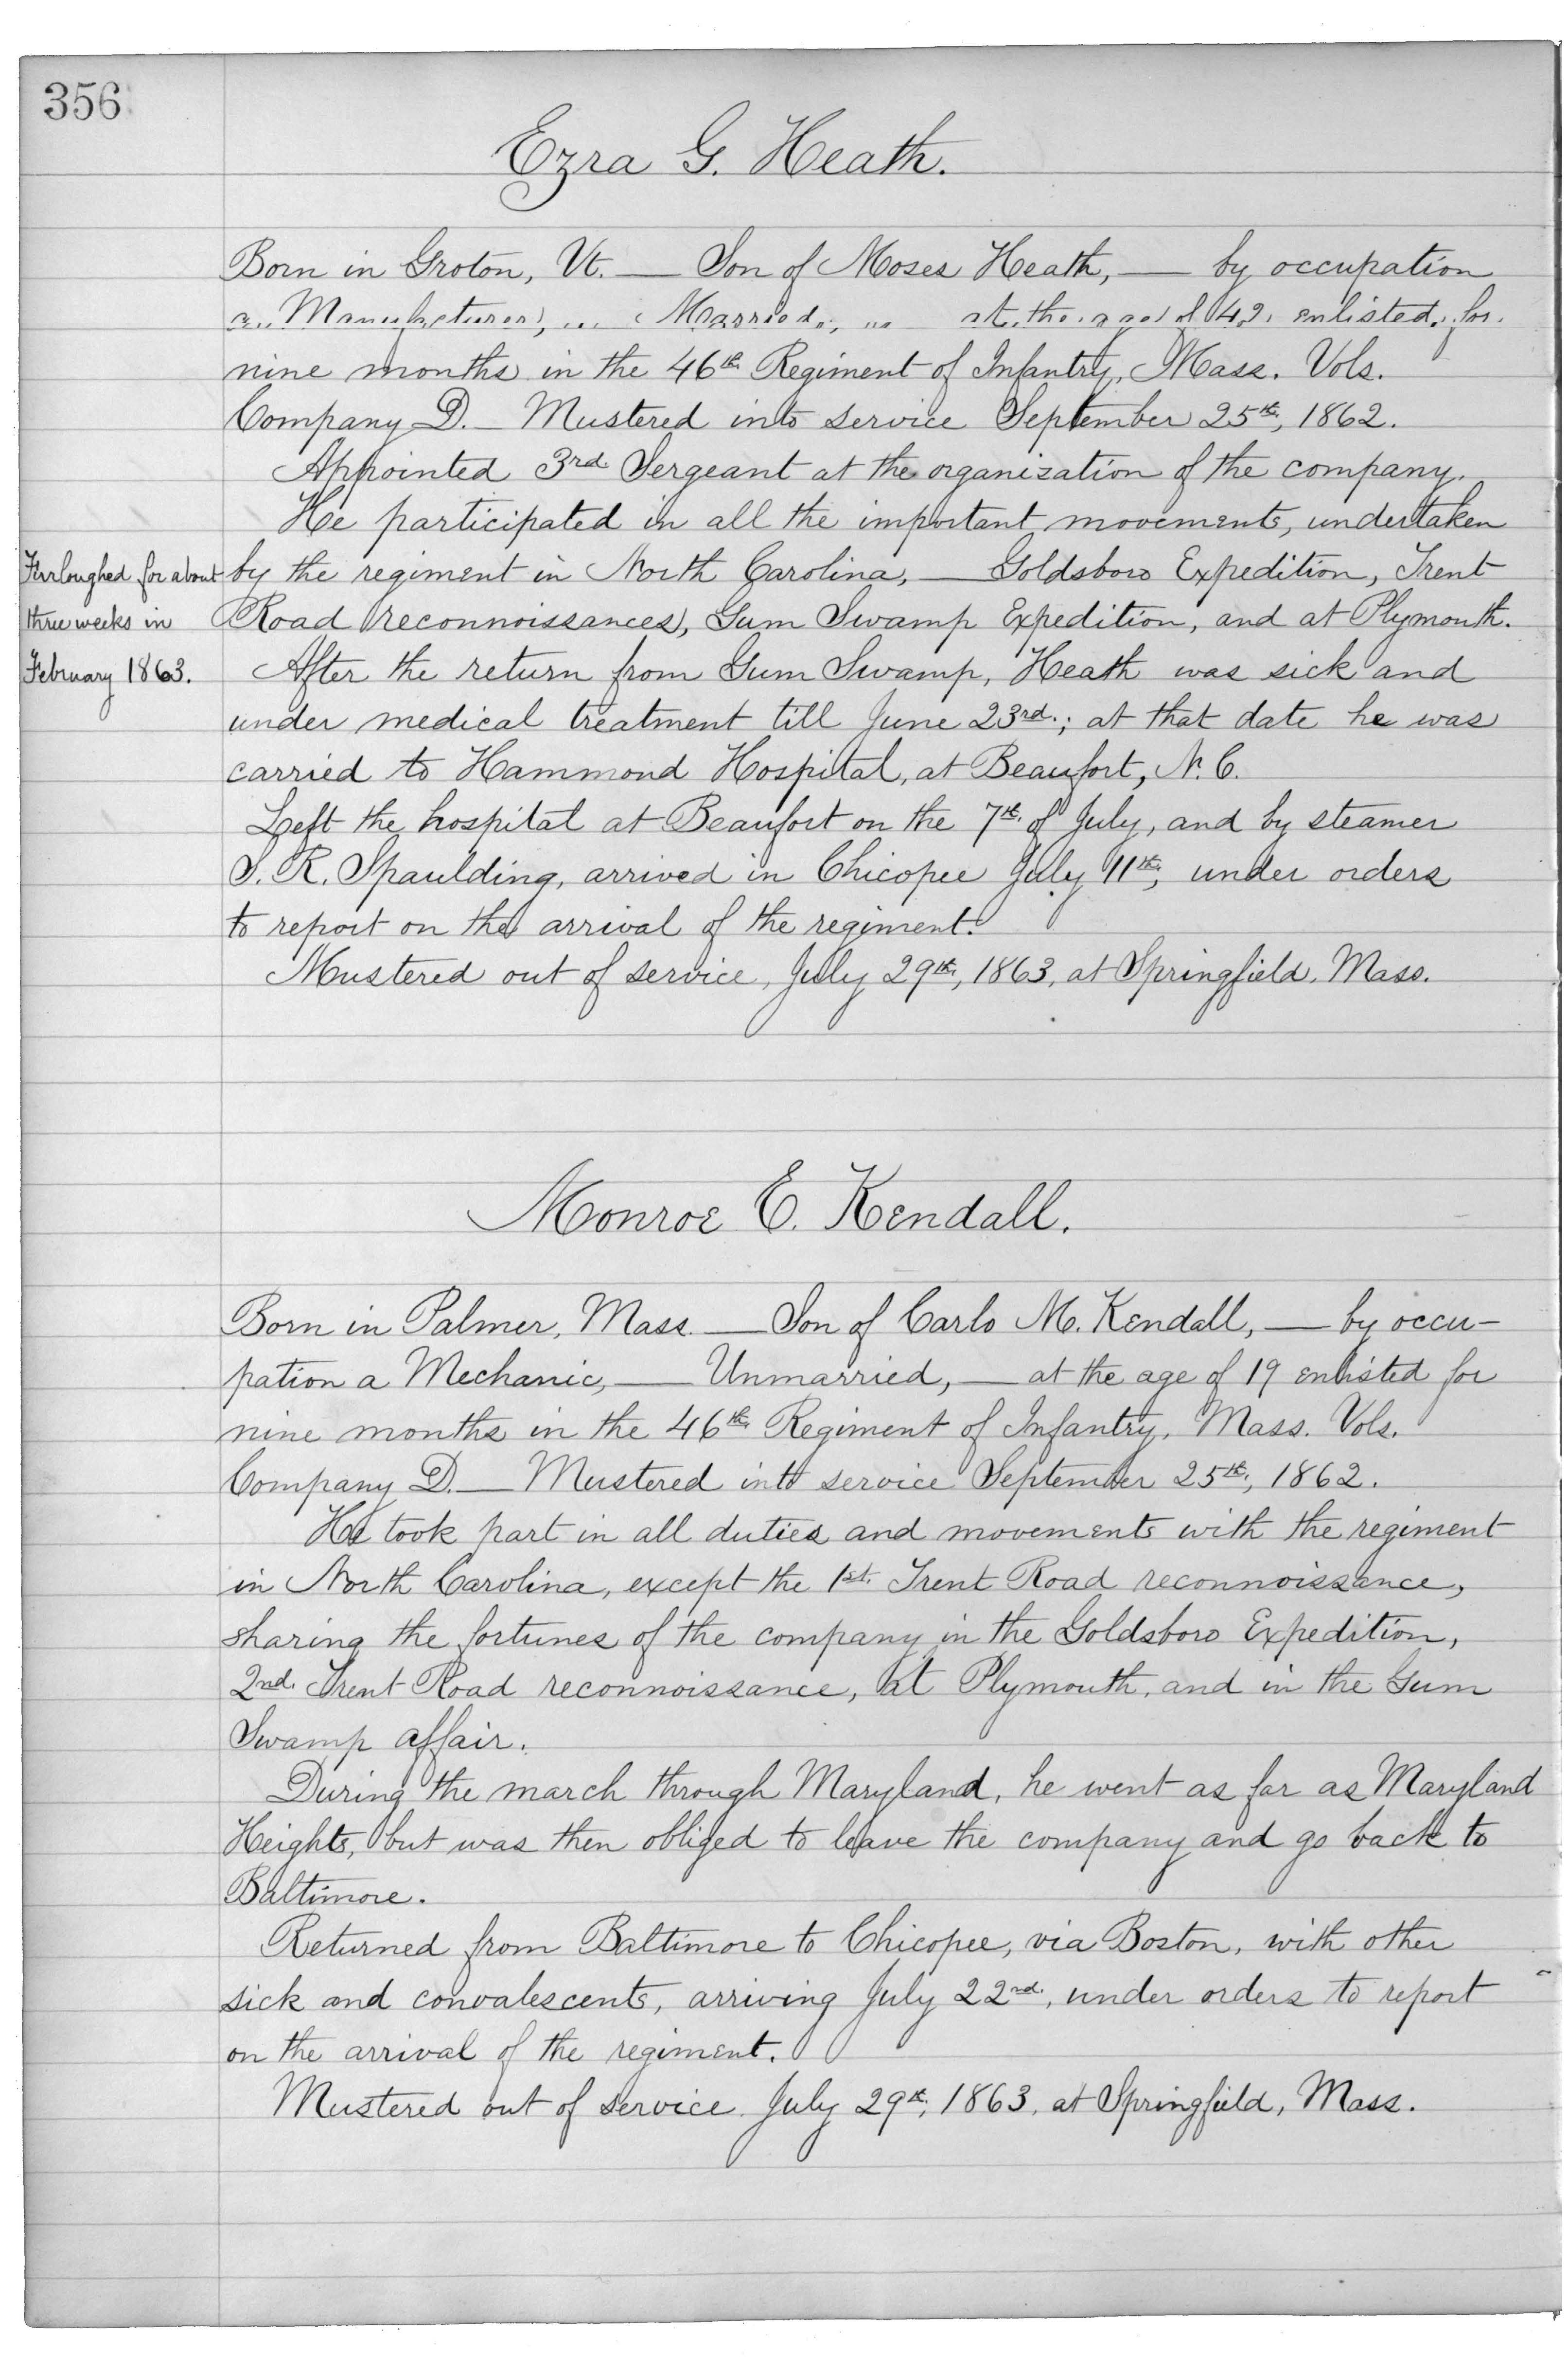 356
Ezra G. Heath.
Born in Groton, Vt. — Son of Moses Heath, — by occupation
a Manufacturer, — Married, — at the age of 42, enlisted for
nine months in the 46th Regiment of Infantry, Mass. Vols.
Company D. — Mustered into service September 25th, 1862.
Appointed 3rd Sergeant at the organization of the company.
He participated in all the important movements, undertaken
by the regiment in North Carolina, — Goldsboro Expedition, Trent
Road reconnoissances, Gum Swamp Expedition, and at Plymouth.
Furloughed for about
three weeks in
February 1863.
After the return from Gum Swamp, Heath was sick and
under medical treatment till June 23rd.; at that date he was
carried to Hammond Hospital, at Beaufort, N.C.
Left the hospital at Beaufort on the 7th of July, and by steamer
S. R. Spaulding, arrived in Chicopee July 11th, under orders
to report on the arrival of the regiment.
Mustered out of service, July 29th, 1863, at Springfield, Mass.
Monroe E. Kendall.
Born in Palmer, Mass. — Son of Carlo M. Kendall, — by occu-
pation a Mechanic, — Unmarried, — at the age of 19 enlisted for
nine months in the 46th Regiment of Infantry, Mass. Vols.
Company D. — Mustered into service September 25th, 1862.
He took part in all duties and movements with the regiment
in North Carolina, except the 1st. Trent Road reconnoissance,
sharing the fortunes of the company in the Goldsboro Expedition,
2nd. Trent Road reconnoissance, at Plymouth, and in the Gum
Swamp affair.
During the march through Maryland, he went as far as Maryland
Heights, but was then obliged to leave the company and go back to
Baltimore.
Returned from Baltimore to Chicopee, via Boston, with other
sick and convalescents, arriving July 22nd, under orders to report
on the arrival of the regiment.
Mustered out of service July 29th, 1863, at Springfield, Mass.